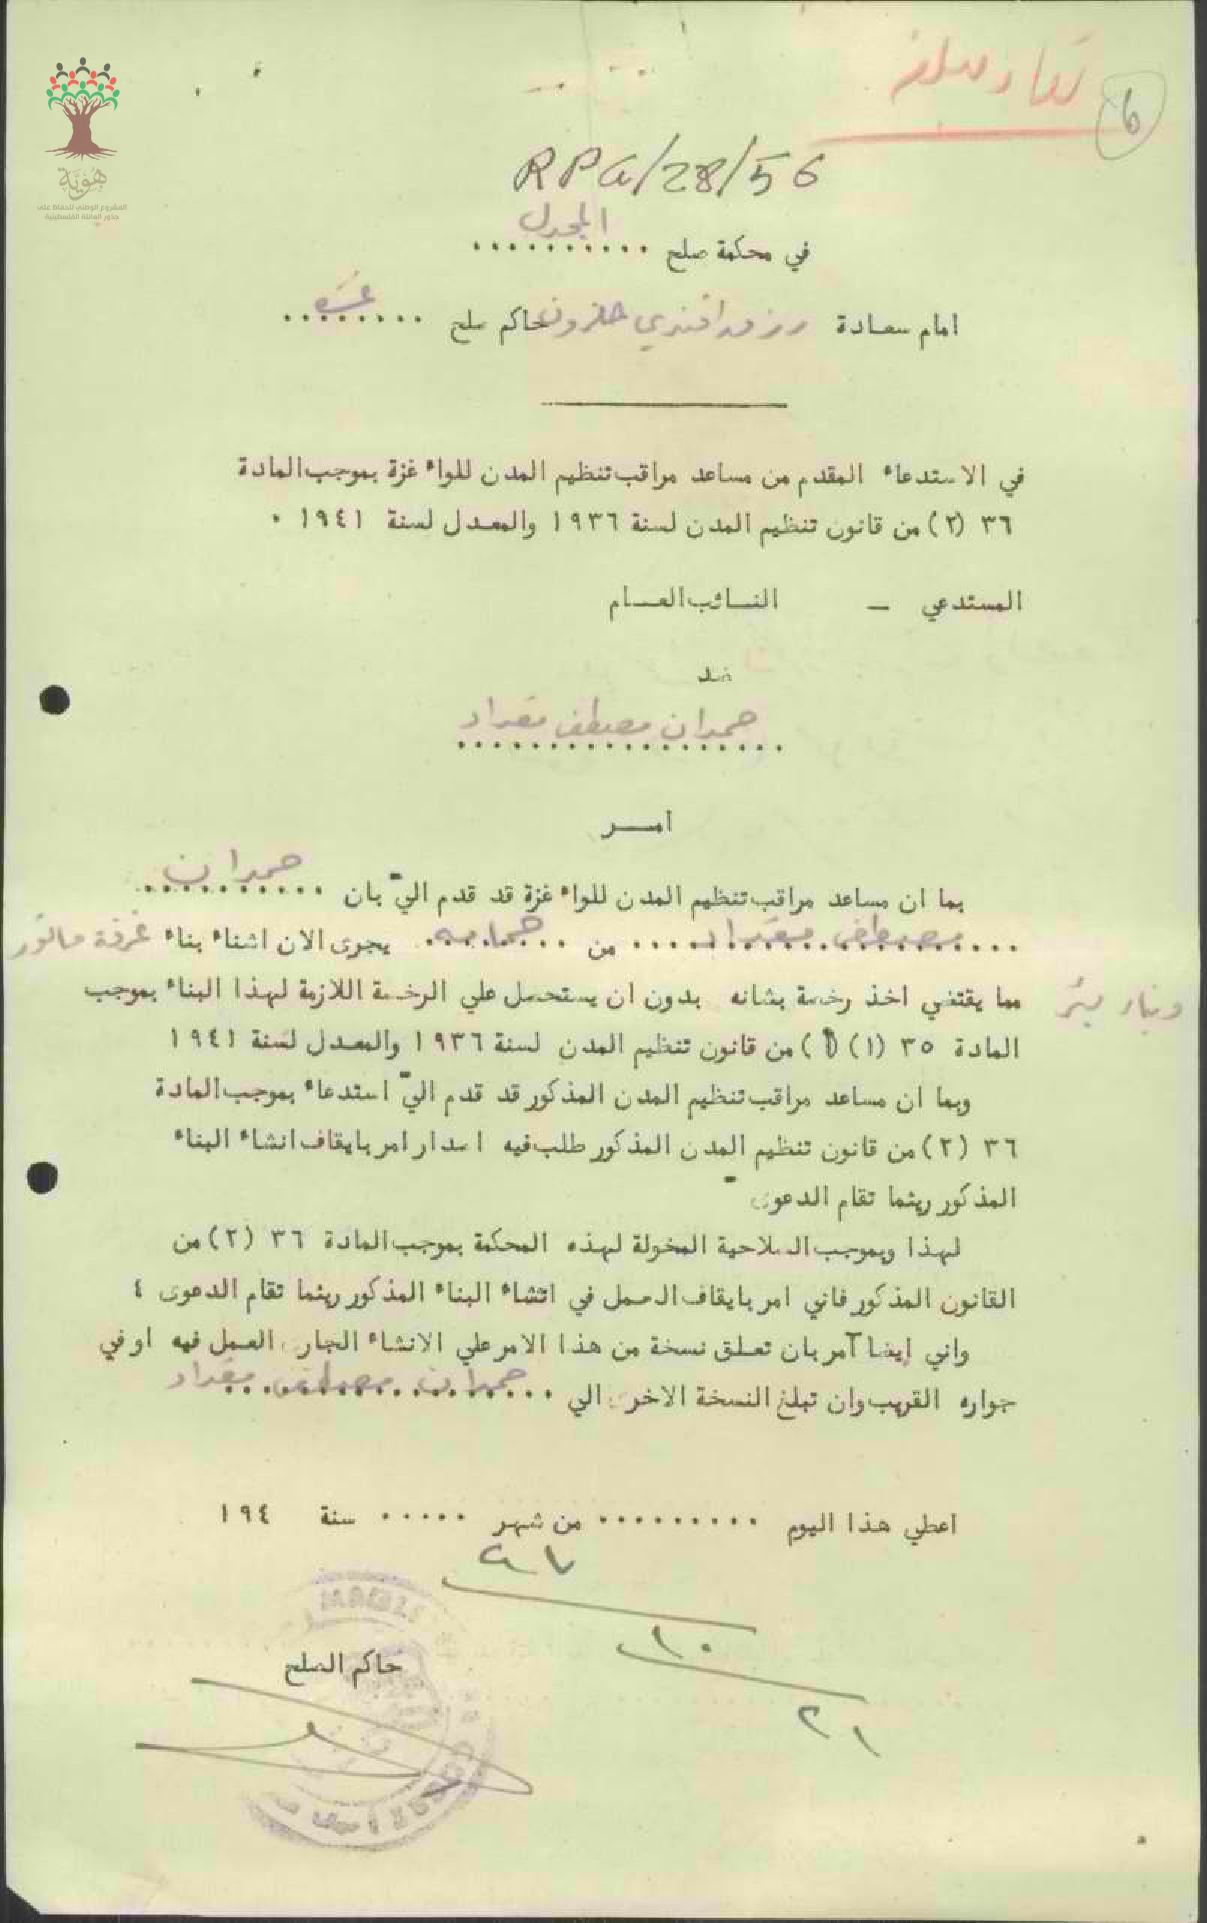 6
هوية
المشروع الوطني للحفاظ على
جذور العائلة الفلسطينية
RPG/28/56
المجدل
في محكمة صلح ..........
امام سعادة افندي حاكم صلح غزه
في الاستدعاء المقدم من مساعد مراقب تنظيم المدن للواء غزة بموجب المادة
٣٦ (٢) من قانون تنظيم المدن لسنة ١٩٣٦ والمعدل لسنة ١٩٤١ .
المستدعي — النائب العام
ضد
حمدان مصطفى مقداد
امر
بما ان مساعد مراقب تنظيم المدن للواء غزة قد قدم اليّ بان حمدان
مصطفى مقداد من حمامه يجرى الان اشناء بناء غرفة ماتور
وبناء بئر مما يقتضي اخذ رخصة بشانه بدون ان يستحصل علي الرخصة اللازمة لهذا البناء بموجب
المادة ٣٥ (١) (أ) من قانون تنظيم المدن لسنة ١٩٣٦ والمعدل لسنة ١٩٤١
وبما ان مساعد مراقب تنظيم المدن المذكور قد قدم اليّ استدعاء بموجب المادة
٣٦ (٢) من قانون تنظيم المدن المذكور طلب فيه اصدار امر بايقاف انشاء البناء
المذكور ريثما تقام الدعوى
لهذا وبموجب الصلاحية المخولة لهذه المحكمة بموجب المادة ٣٦ (٢) من
القانون المذكور فاني امر بايقاف العمل في انشاء البناء المذكور ريثما تقام الدعوى ٤
واني ايضا آمر بان تعلق نسخة من هذا الامر علي الانشاء الجارى العمل فيه او في
جواره القريب وان تبلغ النسخة الاخرى الي حمدان مصطفى مقداد
اعطي هذا اليوم .......... من شهر ..... سنة ١٩٤
١٠
حاكم الصلح